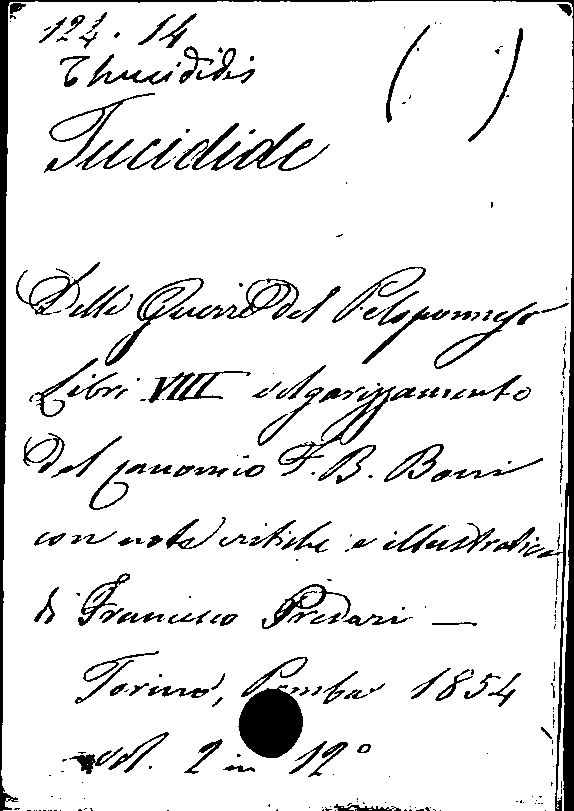 124. 14
Thucididis
Tucidide
Delle Guerre del Peloponneso
Libri VIII volgarizzamento
del canonico F. B. Boni
con note critiche e illustrative
di Francesco Predari —
Torino, Pomba 1854
vol. 2 in 12°